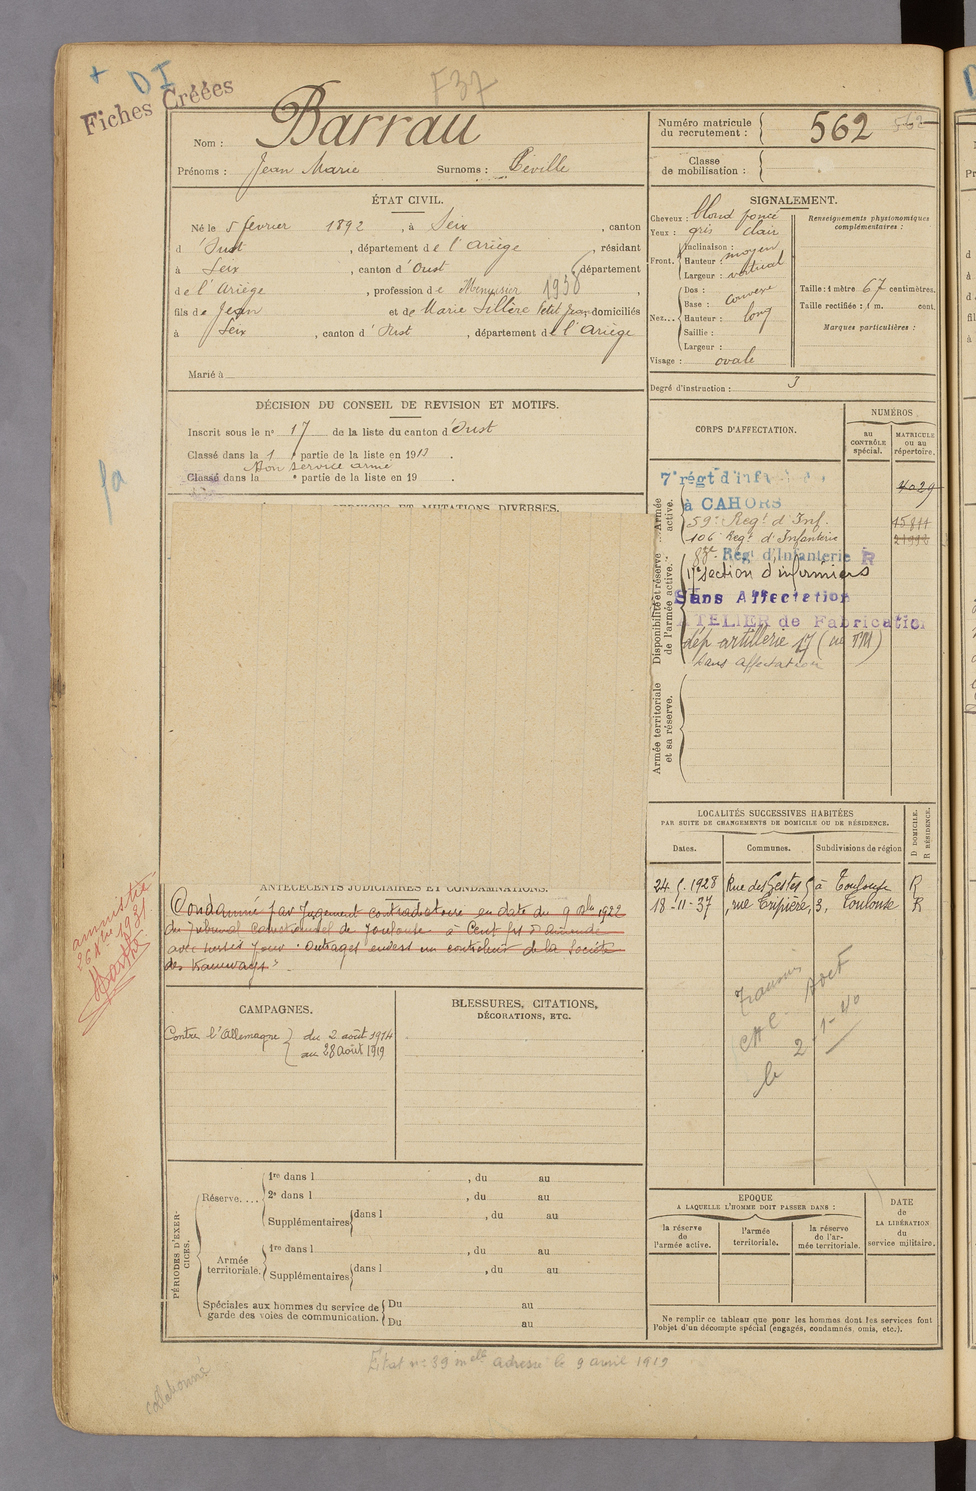 + DI
Fiches Créées
F37
Nom : Barrau
Prénoms : Jean Marie Surnoms : Péville
Numéro matricule du recrutement : 562 562
Classe de mobilisation :
ÉTAT CIVIL.
Né le 5 février 1892, à Seix, canton
d'Oust, département de l'Ariège, résidant
à Seix, canton d'Oust, département
de l'Ariège, profession de Menuisier 1938
fils de Jean et de Marie Sillère Petit Jean domiciliés
à Seix, canton d'Oust, département de l'Ariège
Marié à
SIGNALEMENT.
Cheveux : blond foncé
Yeux : gris clair
Front. Inclinaison :
Hauteur : moyen
Largeur : vertical
Nez... Dos :
Base : convexe
Hauteur : long
Saillie :
Largeur :
Visage : ovale
Renseignements physionomiques complémentaires :
Taille : 1 mètre 67 centimètres.
Taille rectifiée : 1 m. cent.
Marques particulières :
Degré d'instruction : 3
DÉCISION DU CONSEIL DE REVISION ET MOTIFS.
Inscrit sous le n° 17 de la liste du canton d'Oust
Classé dans la 1 e partie de la liste en 1913.
Bon service armé
Classé dans la e partie de la liste en 19 .
fa
SERVICES ET MUTATIONS DIVERSES.
CORPS D'AFFECTATION.
NUMÉROS
au CONTRÔLE spécial.
MATRICULE ou au répertoire.
Armée active.
7e régt d'inf
à CAHORS 4029
59e Regt d'Inf. 15811
106 Regt d'Infanterie
Disponibilité et réserve de l'armée active.
83e Régt d'Infanterie R
17e section d'infirmiers
Sans Affectation
ATELIER de Fabrication
dép artillerie 17
Sans affectation
Armée territoriale et sa réserve.
LOCALITÉS SUCCESSIVES HABITÉES
PAR SUITE DE CHANGEMENTS DE DOMICILE OU DE RÉSIDENCE.
Dates. Communes. Subdivisions de région
D DOMICILE. R RÉSIDENCE.
24.5.1928 Rue des Gestes 5 à Toulouse R
18-11-37, rue Tripière, 3, Toulouse R
le 2-1-40
ANTÉCÉDENTS JUDICIAIRES ET CONDAMNATIONS.
Condamné par Jugement contradictoire en date du 9 Xbre 1922
du Tribunal Correctionnel de Toulouse à Cent frs d'amende
avec sursis pour : Outrages envers un controleur de la Société
des tramways".
amnistie
26 Xbre 1931
CAMPAGNES.
Contre l'Allemagne du 2 août 1914
au 28 Août 1919
BLESSURES, CITATIONS, DÉCORATIONS, ETC.
PÉRIODES D'EXERCICES.
Réserve.... 1re dans l , du au
2e dans l , du au
Supplémentaires dans l , du au
Armée territoriale. 1re dans l , du au
Supplémentaires dans l , du au
Spéciales aux hommes du service de garde des voies de communication. Du au
Du au
EPOQUE
A LAQUELLE L'HOMME DOIT PASSER DANS :
la réserve de l'armée active.
l'armée territoriale.
la réserve de l'armée territoriale.
DATE de LA LIBÉRATION du service militaire.
Ne remplir ce tableau que pour les hommes dont les services font
l'objet d'un décompte spécial (engagés, condamnés, omis, etc.).
Etat n° 39 melle adressé le 9 avril 1919
collationné